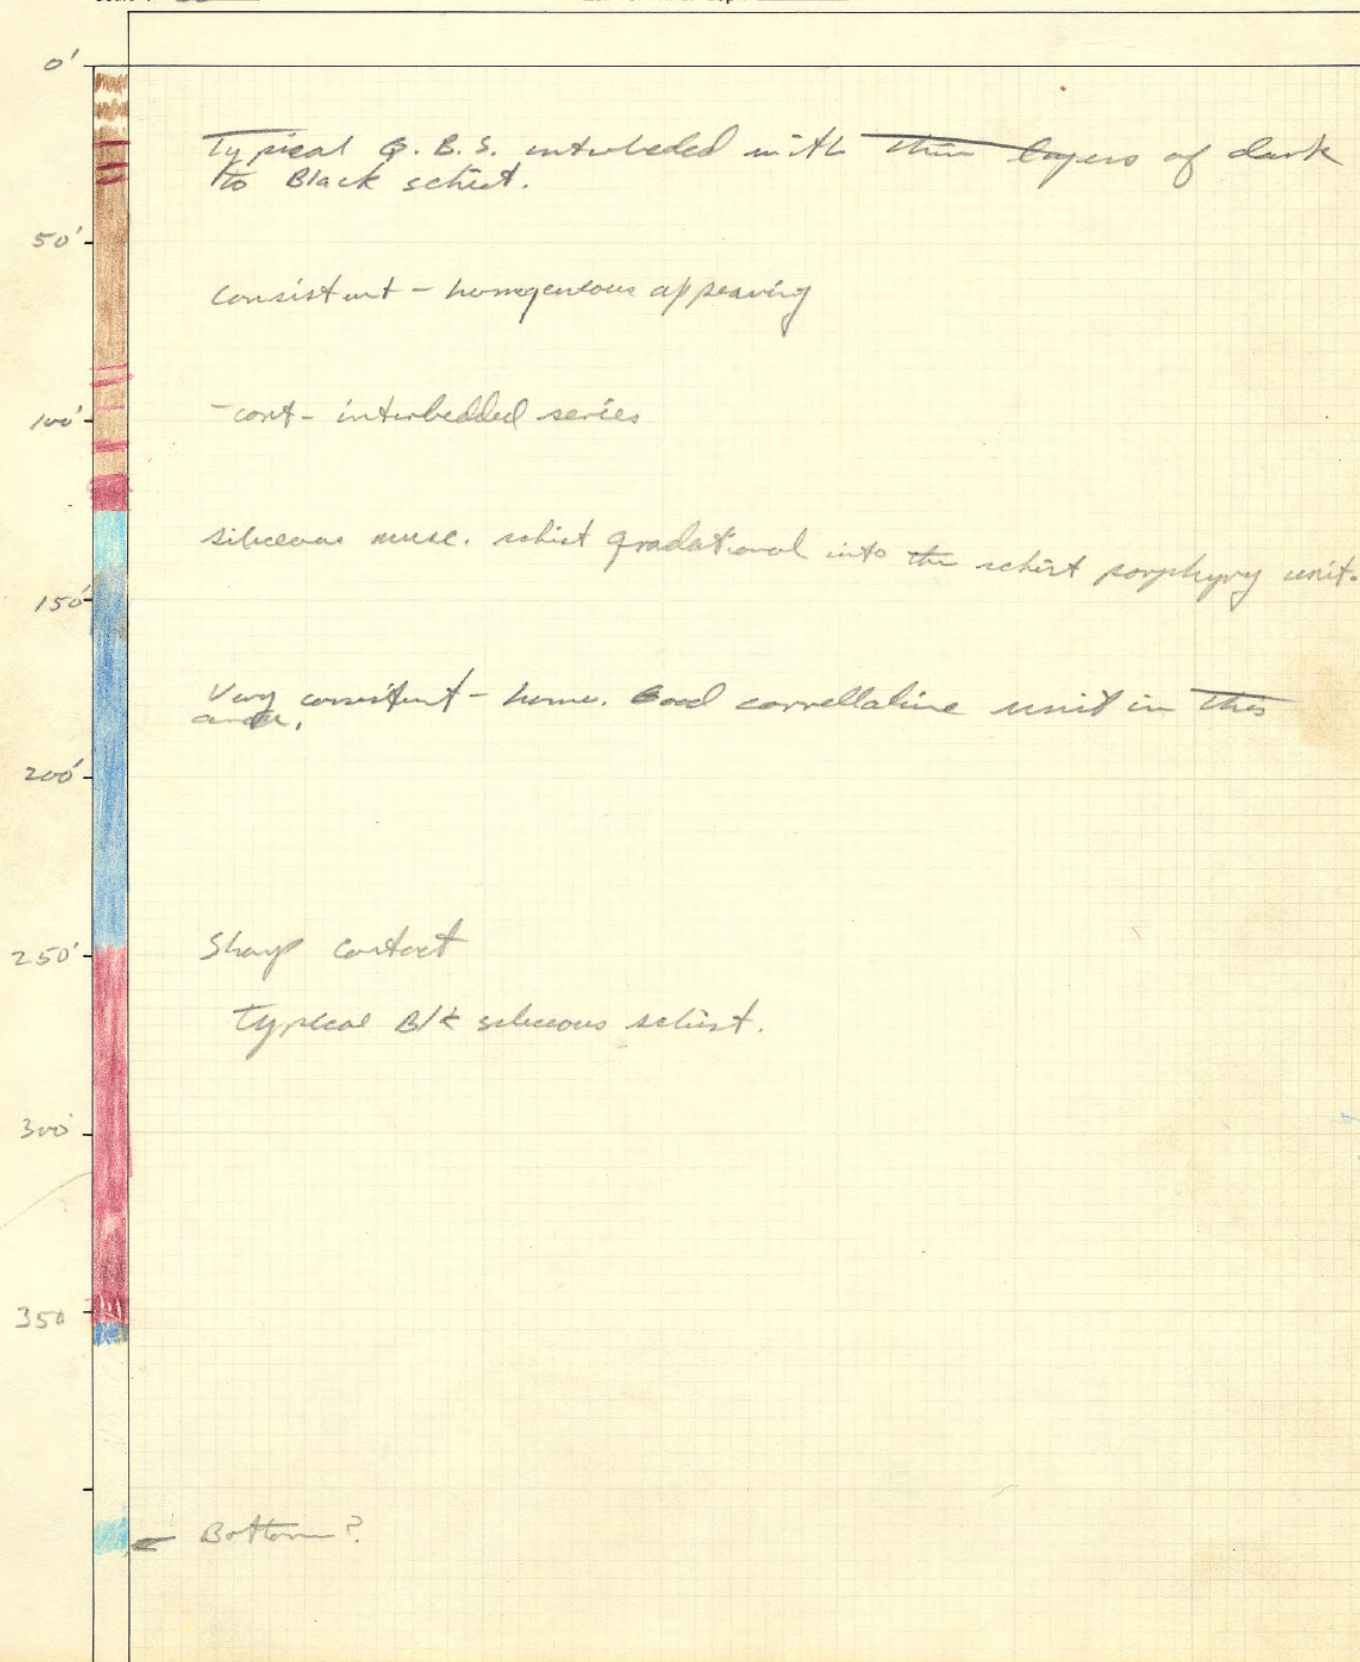 0'
Typical Q.B.S. interbeded with thin layers of dark
to Black schist.
50'
Consistent - homogeneous appearing
100'
-cont- interbedded series
siliceous musc. schist gradational into the schist porphyry unit.
150'
Very consistent - homo. Good correllative unit in this
area.
200'
250'
Sharp Contact
Typical Blk siliceous schist.
300'
350
← Bottom?